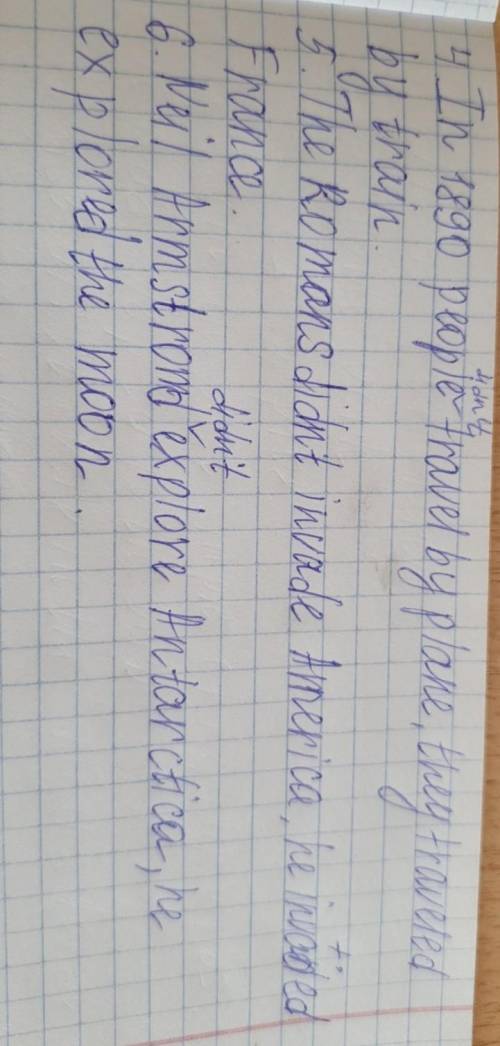 4. In 1890 people didn't travel by plane, they traveled
by train.
5. The Romans didnt invade America, he invaded
France.
6. Neil Armstrond didn't explore Antarctica, he
explored the moon.